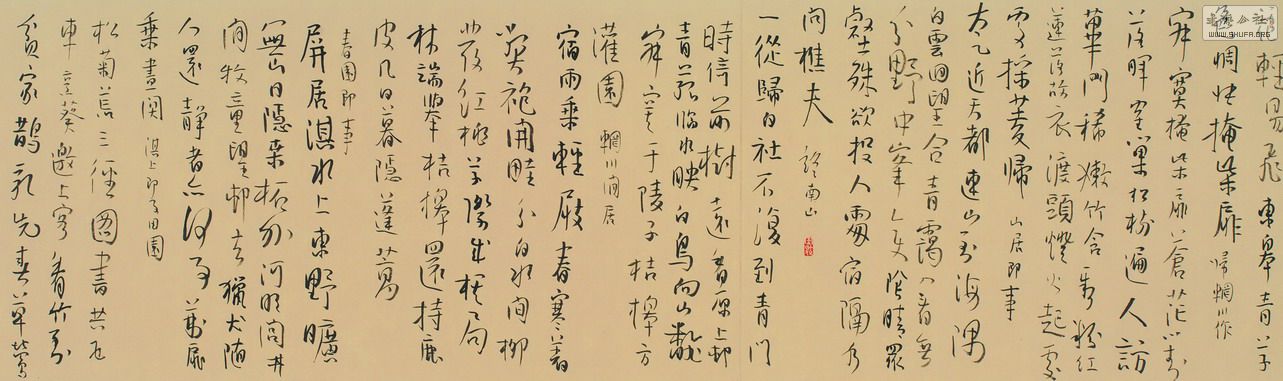 花輕易飛東皋春草
色惆悵掩柴扉 歸輞川作
寂寞掩柴扉蒼茫對
落暉鶴巢松樹遍人訪
蓽門稀嫩竹含新粉紅
蓮落故衣渡頭燈火起處
處採菱歸 山居即事
太乙近天都連山到海隅
白雲迴望合青靄入看無
分野中峯變陰晴眾
壑殊欲投人處宿隔水
問樵夫 終南山
一從歸白社不復到青門
時倚前樹遠看原上邨
青菰臨水映白鳥向山翻
寂寞于陵子桔槔方
灌園 輞川閒居
宿雨乘輕屐春寒著
弊袍開畦分白水間柳
發紅桃草際成棋局
林端舉桔槔還持鹿
皮几日暮隱蓬蒿
春園即事
屏居淇水上東野曠
無山日隱桑柘外河明閭井
間牧童望邨去獵犬隨
人還靜者亦何事荊扉
乘晝關 淇上即事田園
松菊荒三徑圖書共五
車烹葵邀上客看竹到
貧家鵲乳先春草鶯
WWW.SHUFA.ORG